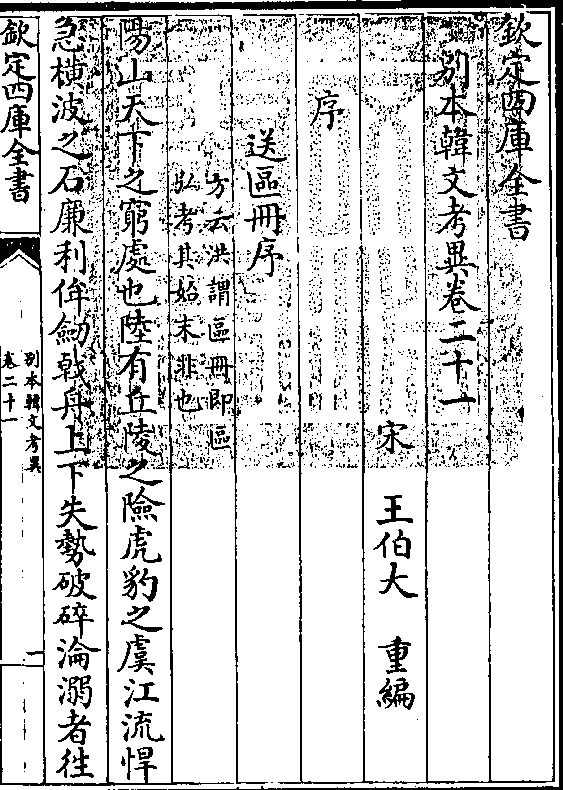 欽定四庫全書
别本韓文考異卷二十一
宋 王伯大 重編
序
送區冊序
方云洪謂區冊即區
弘考其始末非也
陽山天下之窮處也陸有丘陵之險虎豹之虞江流悍
急橫波之石廉利侔劒戟舟上下失勢破碎淪溺者徃
欽定四庫全書
别本韓文考異
卷二十一
一